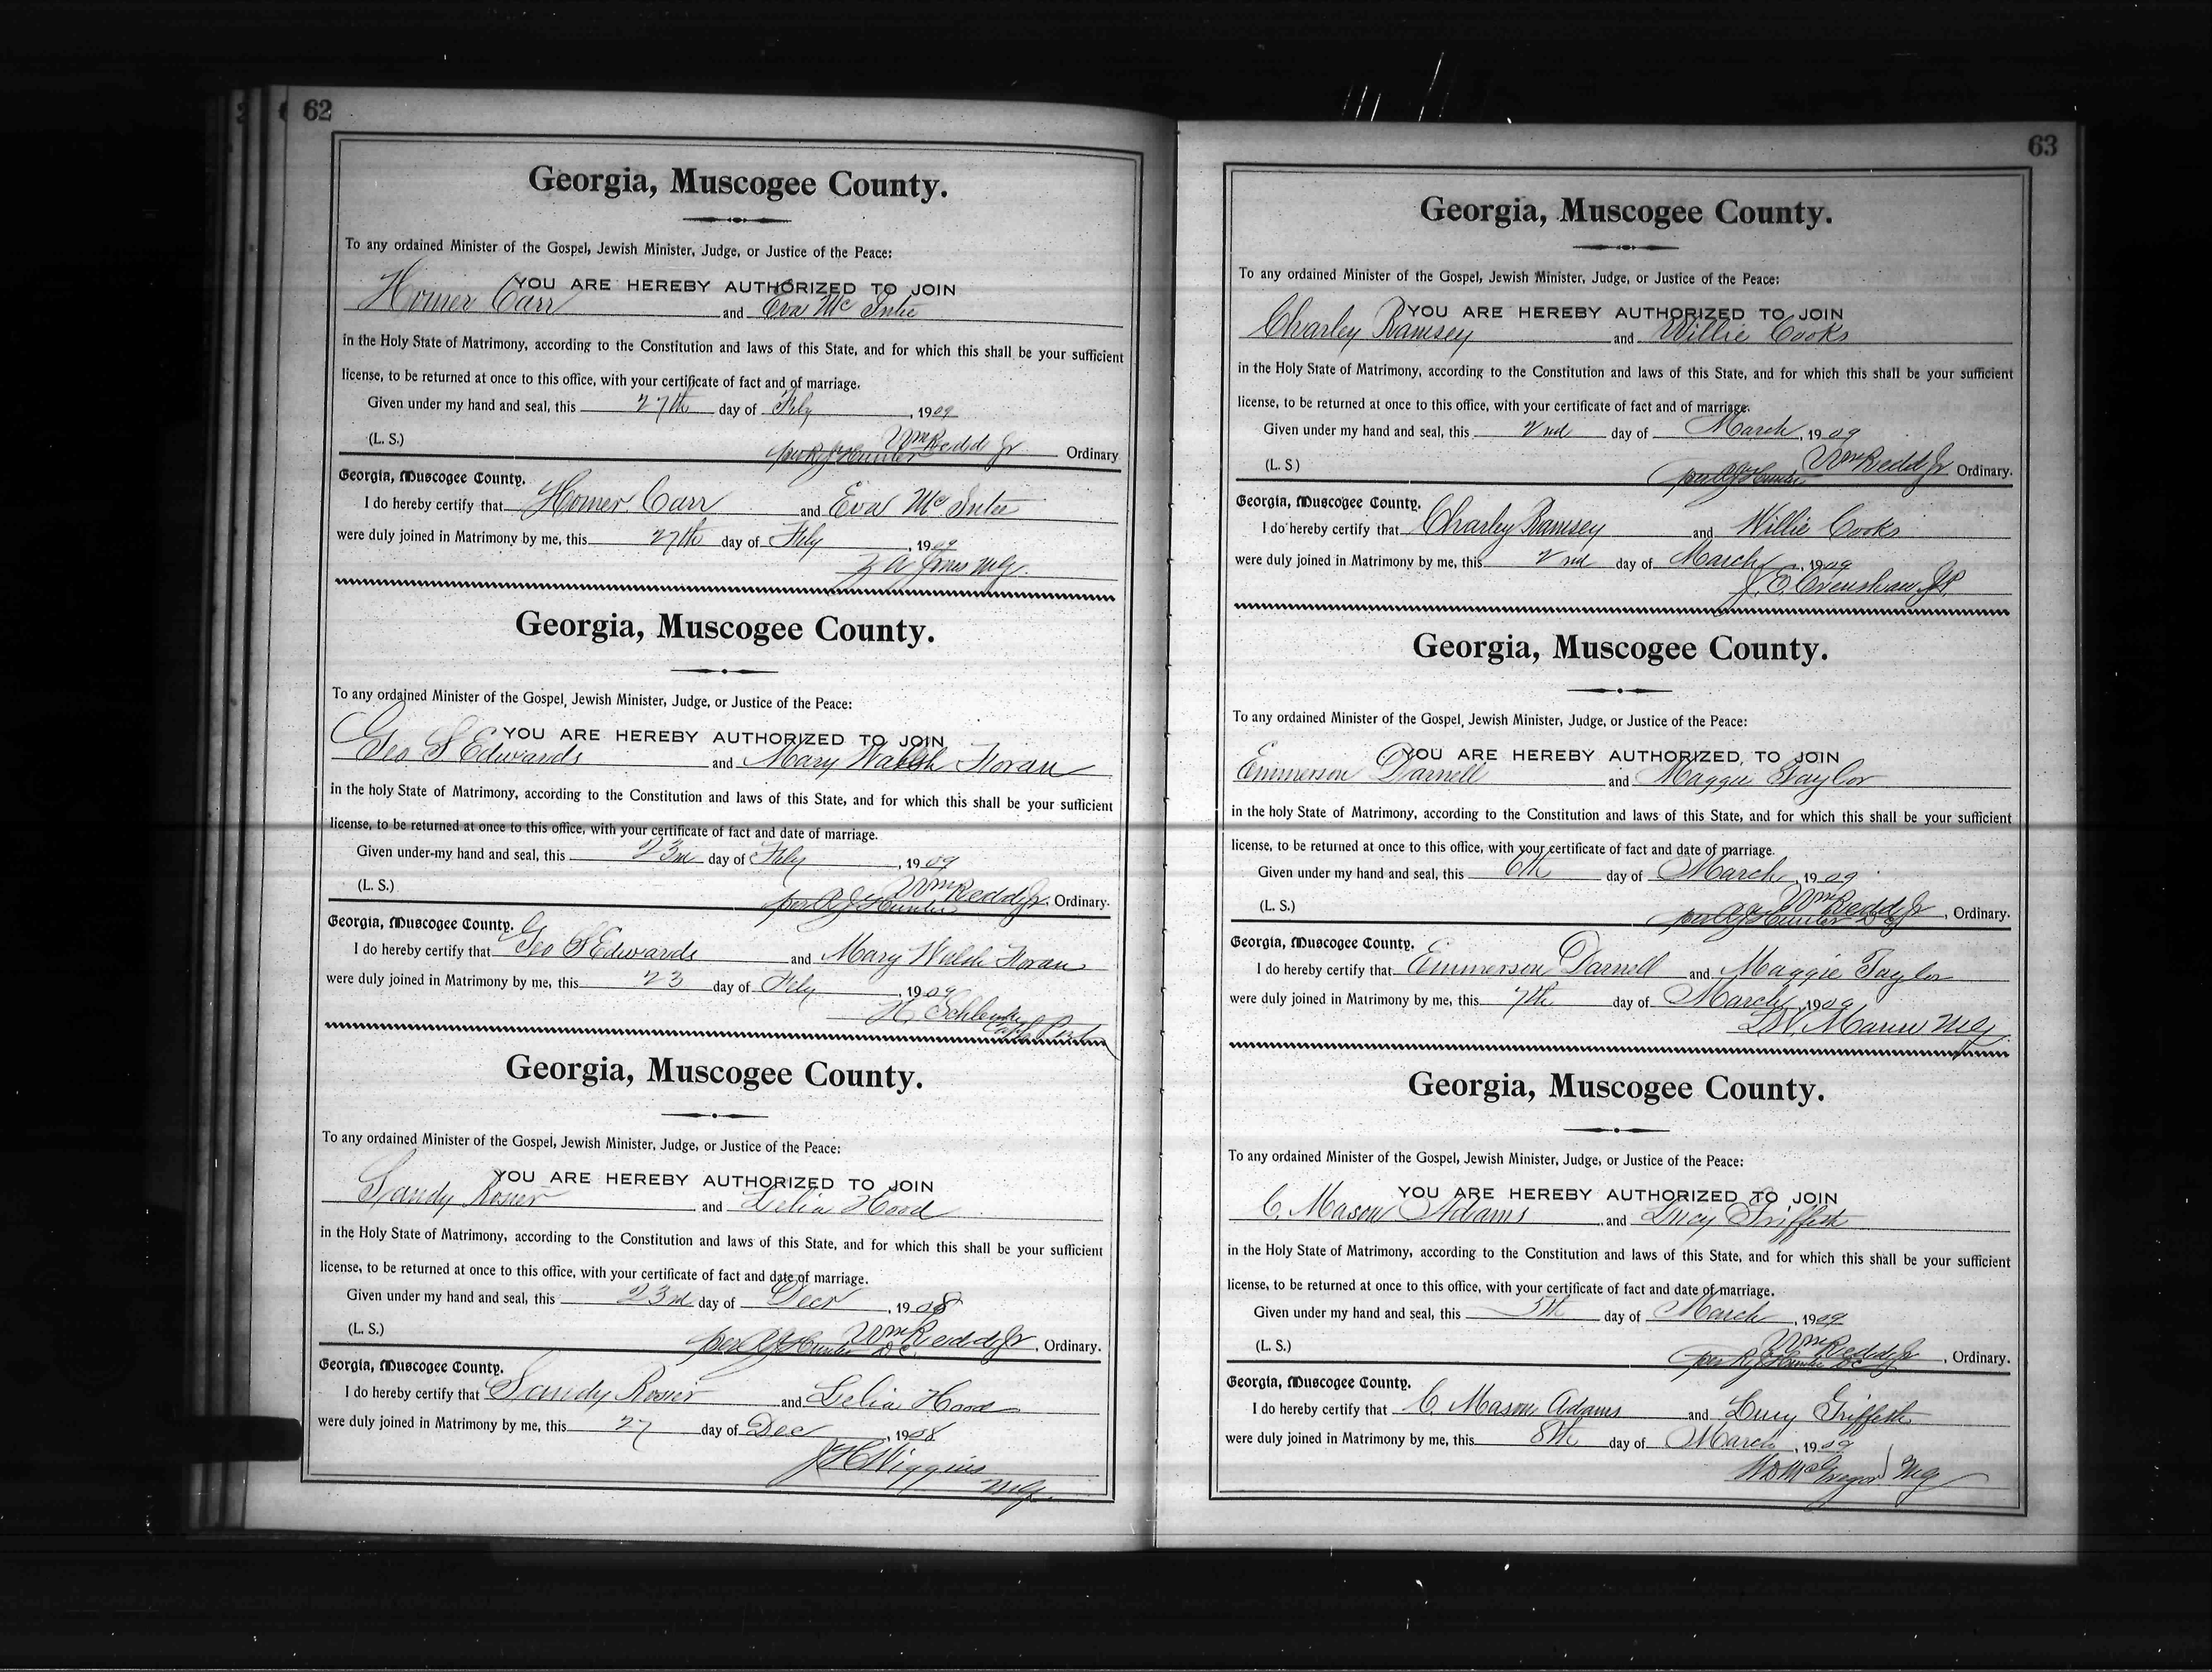 62
Georgia, Muscogee County.
To any ordained Minister of the Gospel, Jewish Minister, Judge, or Justice of the Peace:
YOU ARE HEREBY AUTHORIZED TO JOIN
Homer Carr and Eva Mc Intee
in the Holy State of Matrimony, according to the Constitution and laws of this State, and for which this shall be your sufficient
license, to be returned at once to this office, with your certificate of fact and of marriage.
Given under my hand and seal, this 27th day of Feby, 1909
(L. S.) Wm Redd Jr
per R J Hunter Ordinary
Georgia, Muscogee County.
I do hereby certify that Homer Carr and Eva Mc Intee
were duly joined in Matrimony by me, this 27th day of Feby, 1909
Z A Jones MG.
Georgia, Muscogee County.
To any ordained Minister of the Gospel, Jewish Minister, Judge, or Justice of the Peace:
YOU ARE HEREBY AUTHORIZED TO JOIN
Geo S Edwards and Mary Walsh Horan
in the holy State of Matrimony, according to the Constitution and laws of this State, and for which this shall be your sufficient
license, to be returned at once to this office, with your certificate of fact and date of marriage.
Given under my hand and seal, this 23rd day of Feby, 1909
(L. S.) Wm Redd Jr. Ordinary.
per R J Hunter
Georgia, Muscogee County.
I do hereby certify that Geo S Edwards and Mary Walsh Horan
were duly joined in Matrimony by me, this 23 day of Feby, 1909
H. Schlenke
Georgia, Muscogee County.
To any ordained Minister of the Gospel, Jewish Minister, Judge, or Justice of the Peace:
YOU ARE HEREBY AUTHORIZED TO JOIN
Sandy Rosier and Lelia Hood
in the Holy State of Matrimony, according to the Constitution and laws of this State, and for which this shall be your sufficient
license, to be returned at once to this office, with your certificate of fact and date of marriage.
Given under my hand and seal, this 23rd day of Decr, 1908
(L. S.) Wm Redd Jr, Ordinary.
per R J Hunter D C
Georgia, Muscogee County.
I do hereby certify that Sandy Rosier and Lelia Hood
were duly joined in Matrimony by me, this 27 day of Dec, 1908
J H Wiggins
MG.
63
Georgia, Muscogee County.
To any ordained Minister of the Gospel, Jewish Minister, Judge, or Justice of the Peace:
YOU ARE HEREBY AUTHORIZED TO JOIN
Charley Ramsey and Willie Cooks
in the Holy State of Matrimony, according to the Constitution and laws of this State, and for which this shall be your sufficient
license, to be returned at once to this office, with your certificate of fact and of marriage.
Given under my hand and seal, this 2nd day of March, 1909
(L. S) Wm Redd Jr Ordinary.
per R J Hunter
Georgia, Muscogee County.
I do hereby certify that Charley Ramsey and Willie Cooks
were duly joined in Matrimony by me, this 2nd day of March, 1909
J. O. Crenshaw JP.
Georgia, Muscogee County.
To any ordained Minister of the Gospel, Jewish Minister, Judge, or Justice of the Peace:
YOU ARE HEREBY AUTHORIZED, TO JOIN
Emmerson Darnell and Maggie Taylor
in the holy State of Matrimony, according to the Constitution and laws of this State, and for which this shall be your sufficient
license, to be returned at once to this office, with your certificate of fact and date of marriage.
Given under my hand and seal, this 6th day of March, 1909
(L. S.) Wm Redd Jr, Ordinary.
per R J Hunter D C
Georgia, Muscogee County.
I do hereby certify that Emmerson Darnell and Maggie Taylor
were duly joined in Matrimony by me, this 7th day of March, 1909
MG
Georgia, Muscogee County.
To any ordained Minister of the Gospel, Jewish Minister, Judge, or Justice of the Peace:
YOU ARE HEREBY AUTHORIZED TO JOIN
C. Mason Adams and Lucy Griffeth
in the Holy State of Matrimony, according to the Constitution and laws of this State, and for which this shall be your sufficient
license, to be returned at once to this office, with your certificate of fact and date of marriage.
Given under my hand and seal, this 5th day of March, 1909
(L. S.) Wm Redd Jr, Ordinary.
per R J Hunter DC
Georgia, Muscogee County.
I do hereby certify that C. Mason Adams and Lucy Griffeth
were duly joined in Matrimony by me, this 8th day of March, 1909
McGregor MG